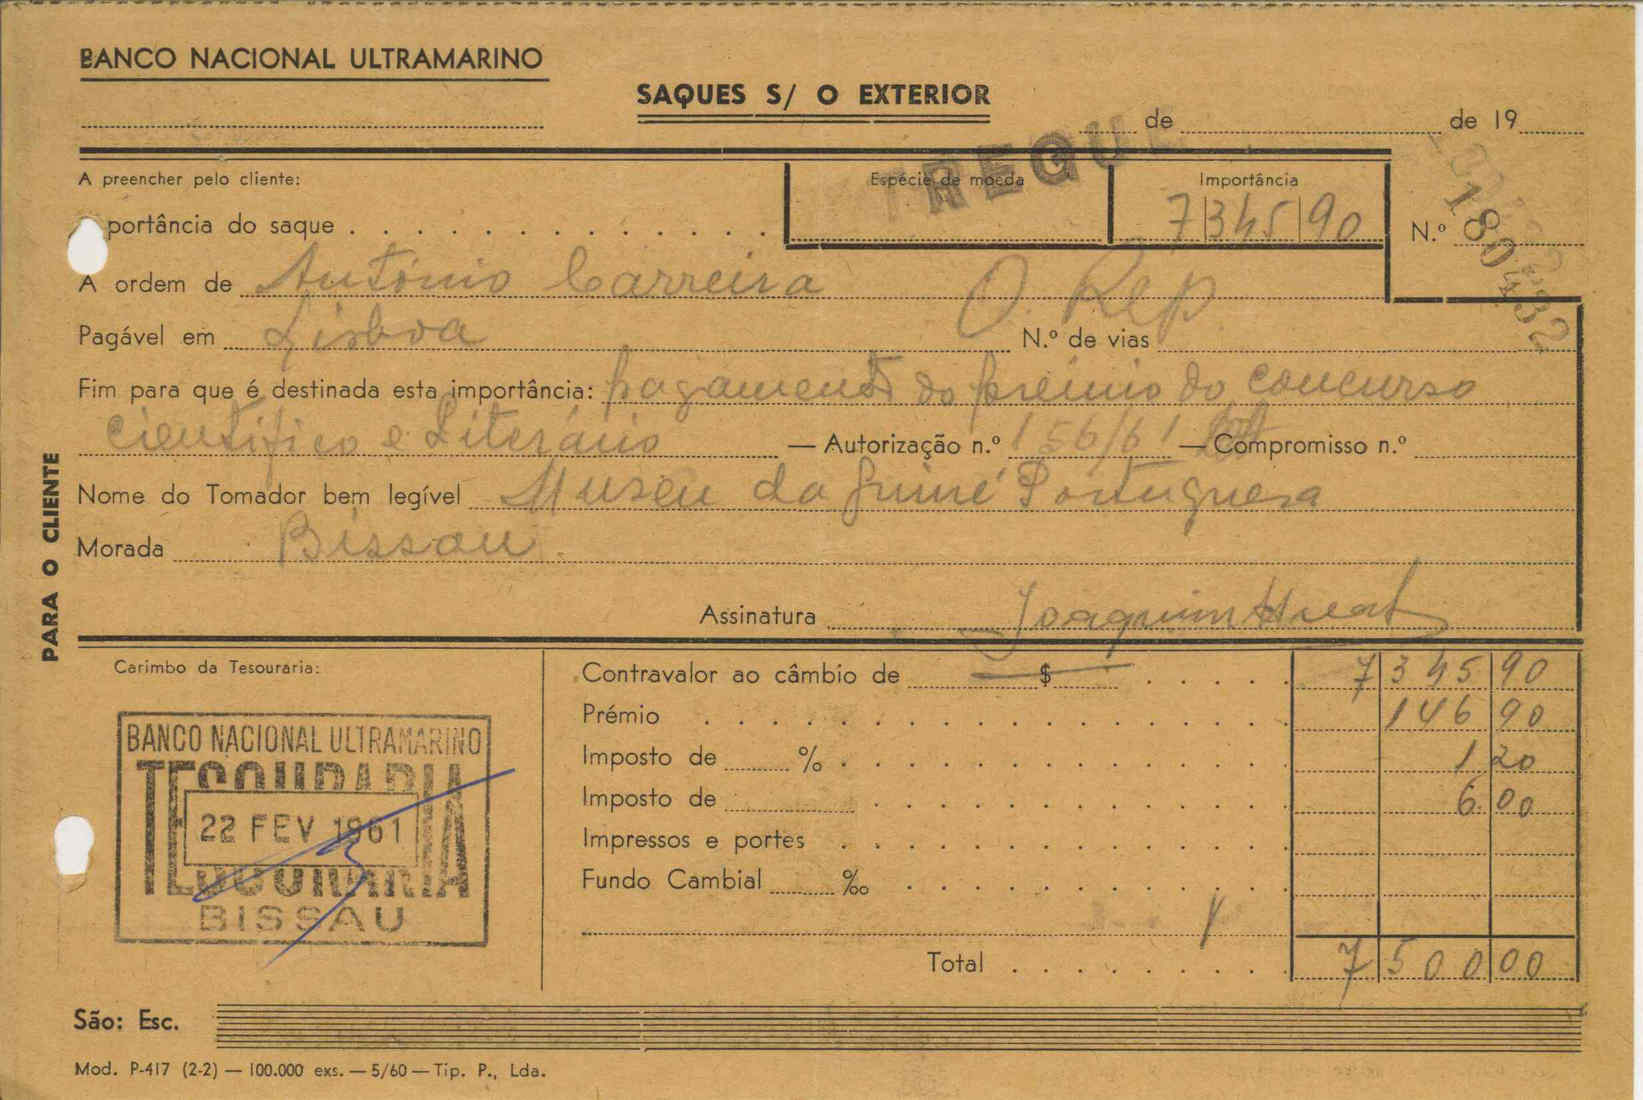 BANCO NACIONAL ULTRAMARINO
SAQUES S/ O EXTERIOR
de de 19
A preencher pelo cliente:
Espécie de moeda
Importância
REGU
portância do saque
7 345 90
N.º 180432
A ordem de António Carreira
O. Rep.
Pagável em Lisboa N.º de vias
Fim para que é destinada esta importância: pagamento do prémio do concurso
científico e Literário — Autorização n.º 156/61 — Compromisso n.º
Nome do Tomador bem legível Museu da Guiné Portuguesa
Morada Bissau.
PARA O CLIENTE
Assinatura Joaquim
Carimbo da Tesouraria:
BANCO NACIONAL ULTRAMARINO
TESOURARIA
22 FEV 1961
TESOURARIA
BISSAU
Contravalor ao câmbio de $ 7 345 90
Prémio 146 90
Imposto de % 1 20
Imposto de 6 00
Impressos e portes
Fundo Cambial ‰
Total 7 500 00
São: Esc.
Mod. P-417 (2-2) — 100.000 exs. — 5/60 — Tip. P., Lda.